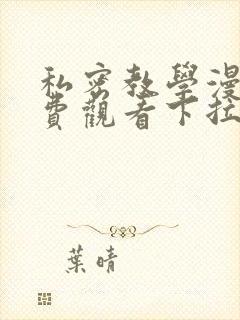 私密教學漫
費觀看下拉
葉晴